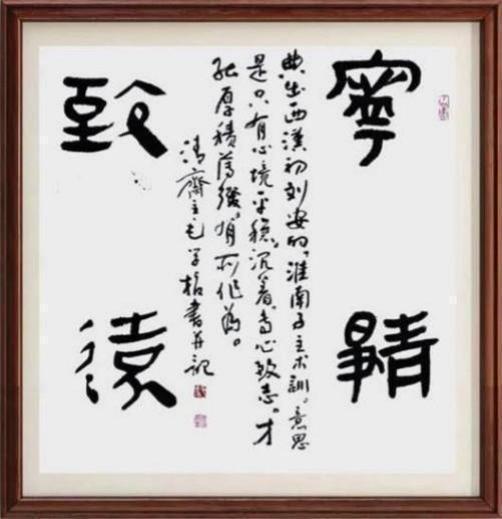 寧靜
典出西漢初刘安的淮南子主术訓。意思
是只有心境平穩、沉着、专心致志。才
能厚積薄發、有所作為。
清齋主毛学書并記
致遠